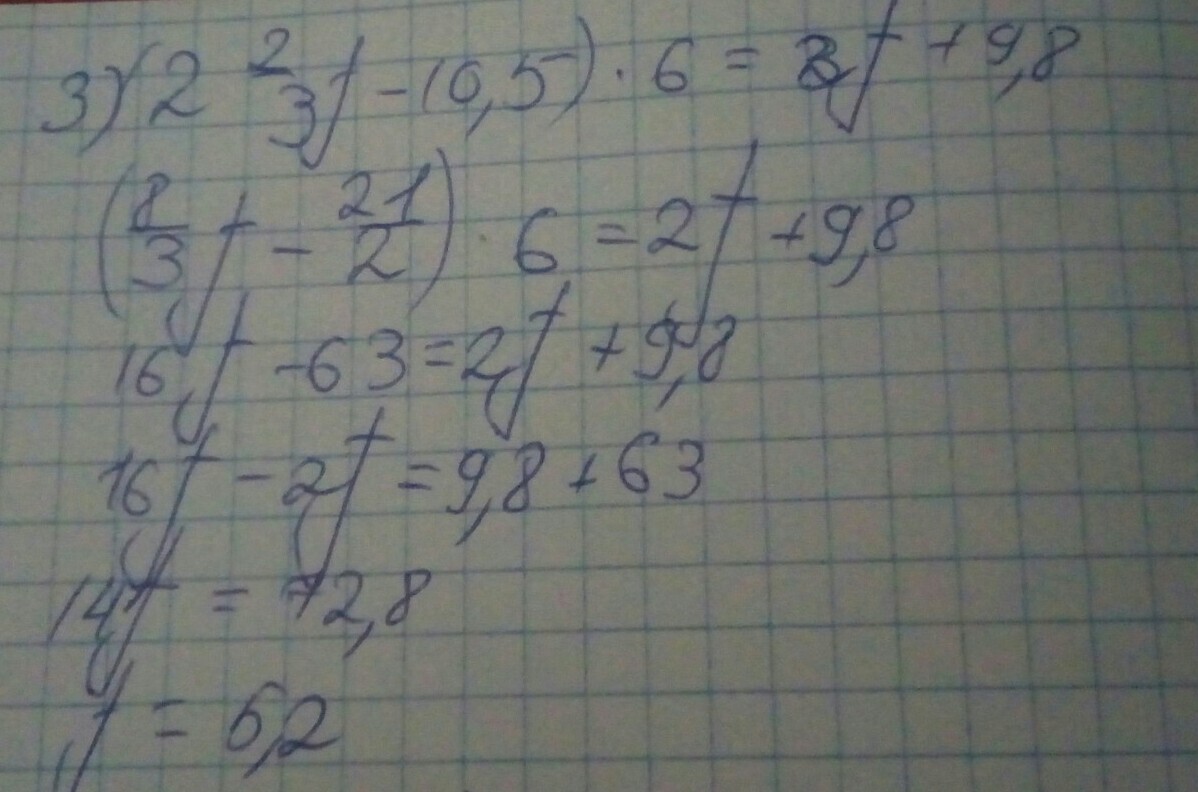 3) (2 2/3 f - 10,5) · 6 = 2f + 9,8
(8/3 f - 21/2) · 6 = 2f + 9,8
16f - 63 = 2f + 9,8
16f - 2f = 9,8 + 63
14f = 72,8
f = 5,2